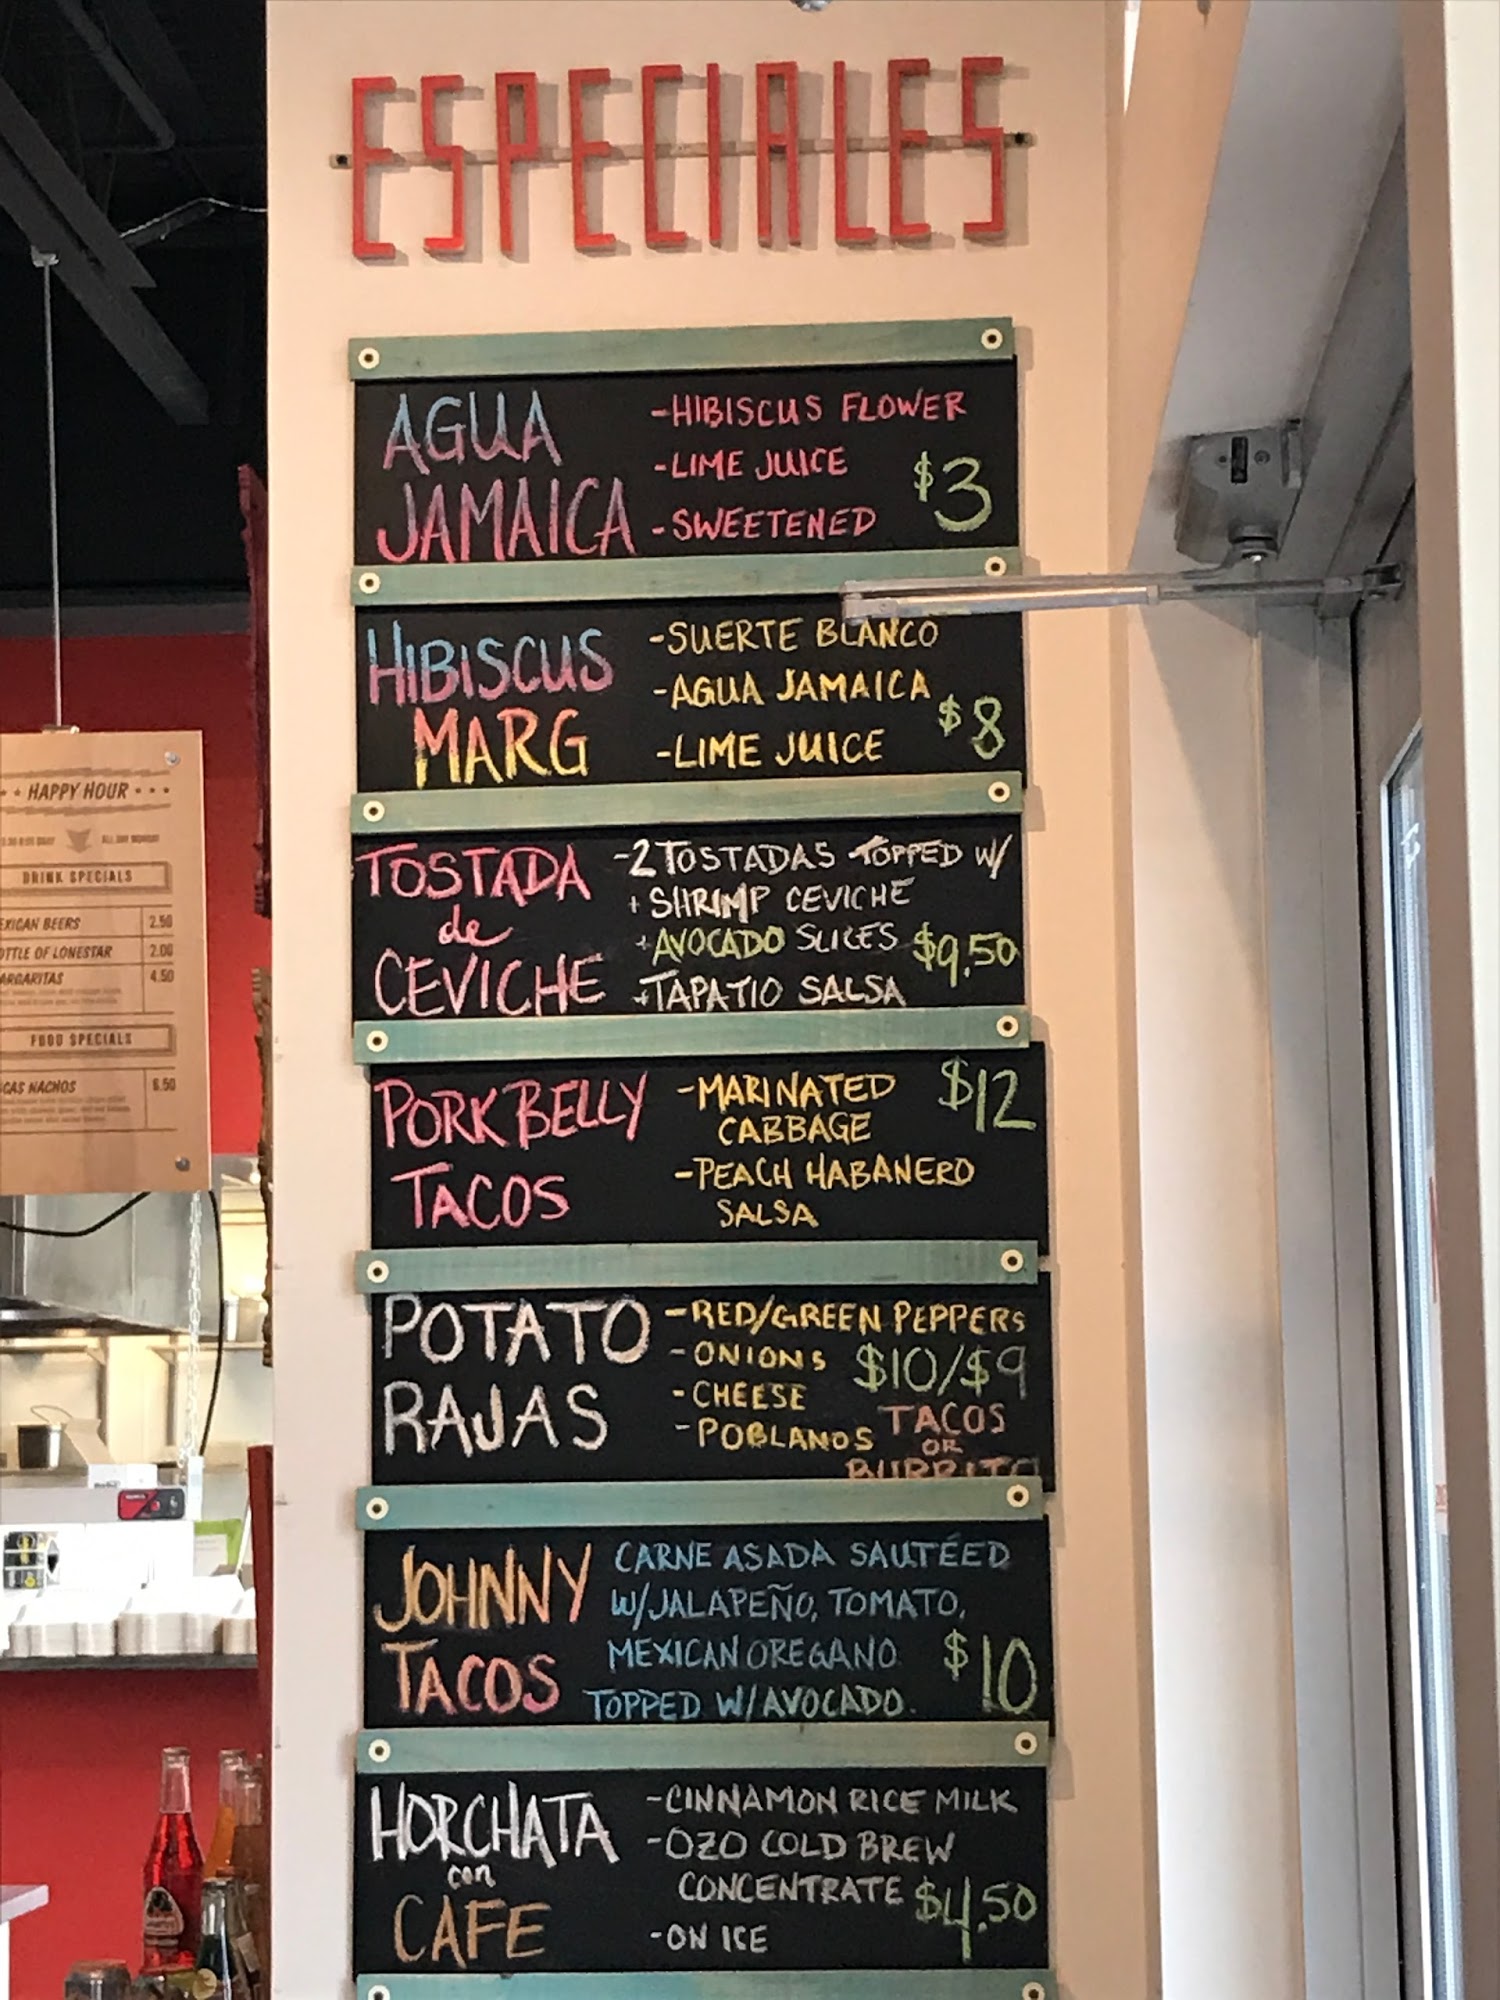 ESPECIALES
AGUA
JAMAICA
-HIBISCUS FLOWER
-LIME JUICE
-SWEETENED
$3
HIBISCUS
MARG
-SUERTE BLANCO
-AGUA JAMAICA
-LIME JUICE
$8
TOSTADA
de
CEVICHE
-2 TOSTADAS TOPPED W/
+ SHRIMP CEVICHE
+AVOCADO SLICES
+TAPATIO SALSA
$9.50
PORK BELLY
TACOS
-MARINATED
CABBAGE
-PEACH HABANERO
SALSA
$12
POTATO
RAJAS
-RED/GREEN PEPPERS
-ONIONS
-CHEESE
-POBLANOS
$10/$9
TACOS
OR
BURRITO
JOHNNY
TACOS
CARNE ASADA SAUTÉED
W/JALAPEÑO, TOMATO,
MEXICAN OREGANO
TOPPED W/AVOCADO.
$10
HORCHATA
con
CAFE
-CINNAMON RICE MILK
-OZO COLD BREW
CONCENTRATE
-ON ICE
$4.50
HAPPY HOUR
ALL DAY MONDAY
DRINK SPECIALS
EXICAN BEERS 2.50
OTTLE OF LONESTAR 2.00
ARGARITAS 4.50
FOOD SPECIALS
GAS NACHOS 6.50